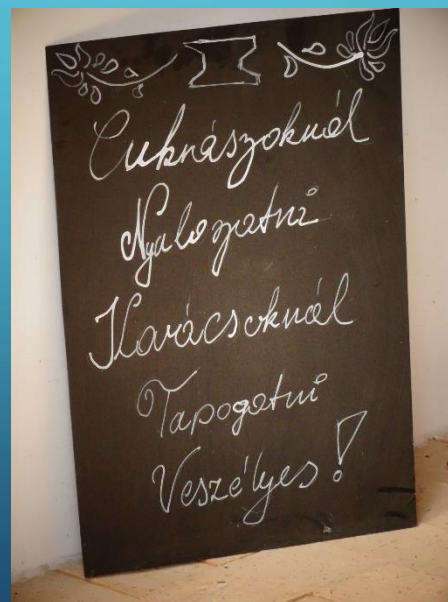 Cukrászoknál
Nyalogatni
Kovácsoknál
Tapogatni
Veszélyes!